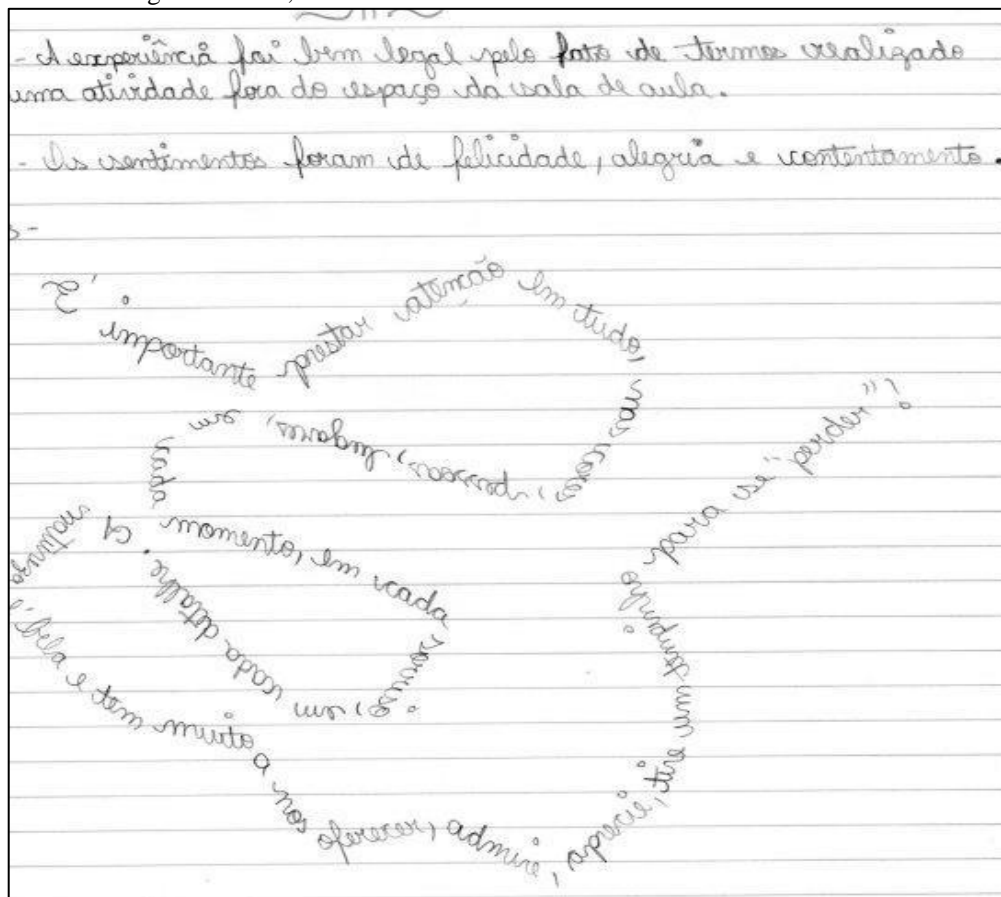 - A experiência foi bem legal pelo fato de termos realizado
uma atividade fora do espaço da sala de aula.
- Os sentimentos foram de felicidade, alegria e contentamento.
É importante prestar atenção em tudo, nas cores, pessoas, lugares, em cada momento, em cada sorriso, em cada detalhe. A natureza é bela e tem muito a nos oferecer, admire, aprecie, tire um tempinho para se "perder"!